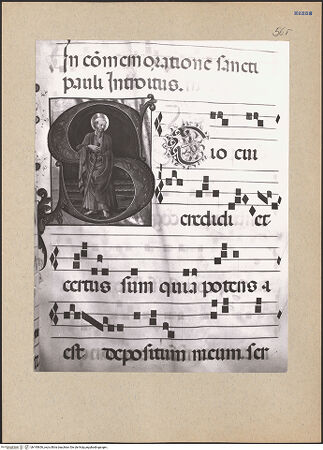 56r
In cõmemoratione sancti
pauli Introitus.
S Cio cui
credidi et
certus sum quia potens ·
est depositum meum ser